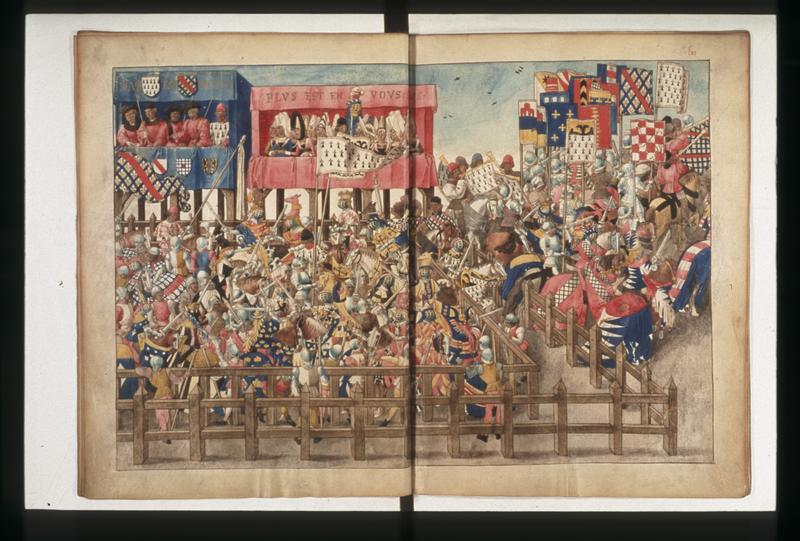 PLVS EST EN VOVS